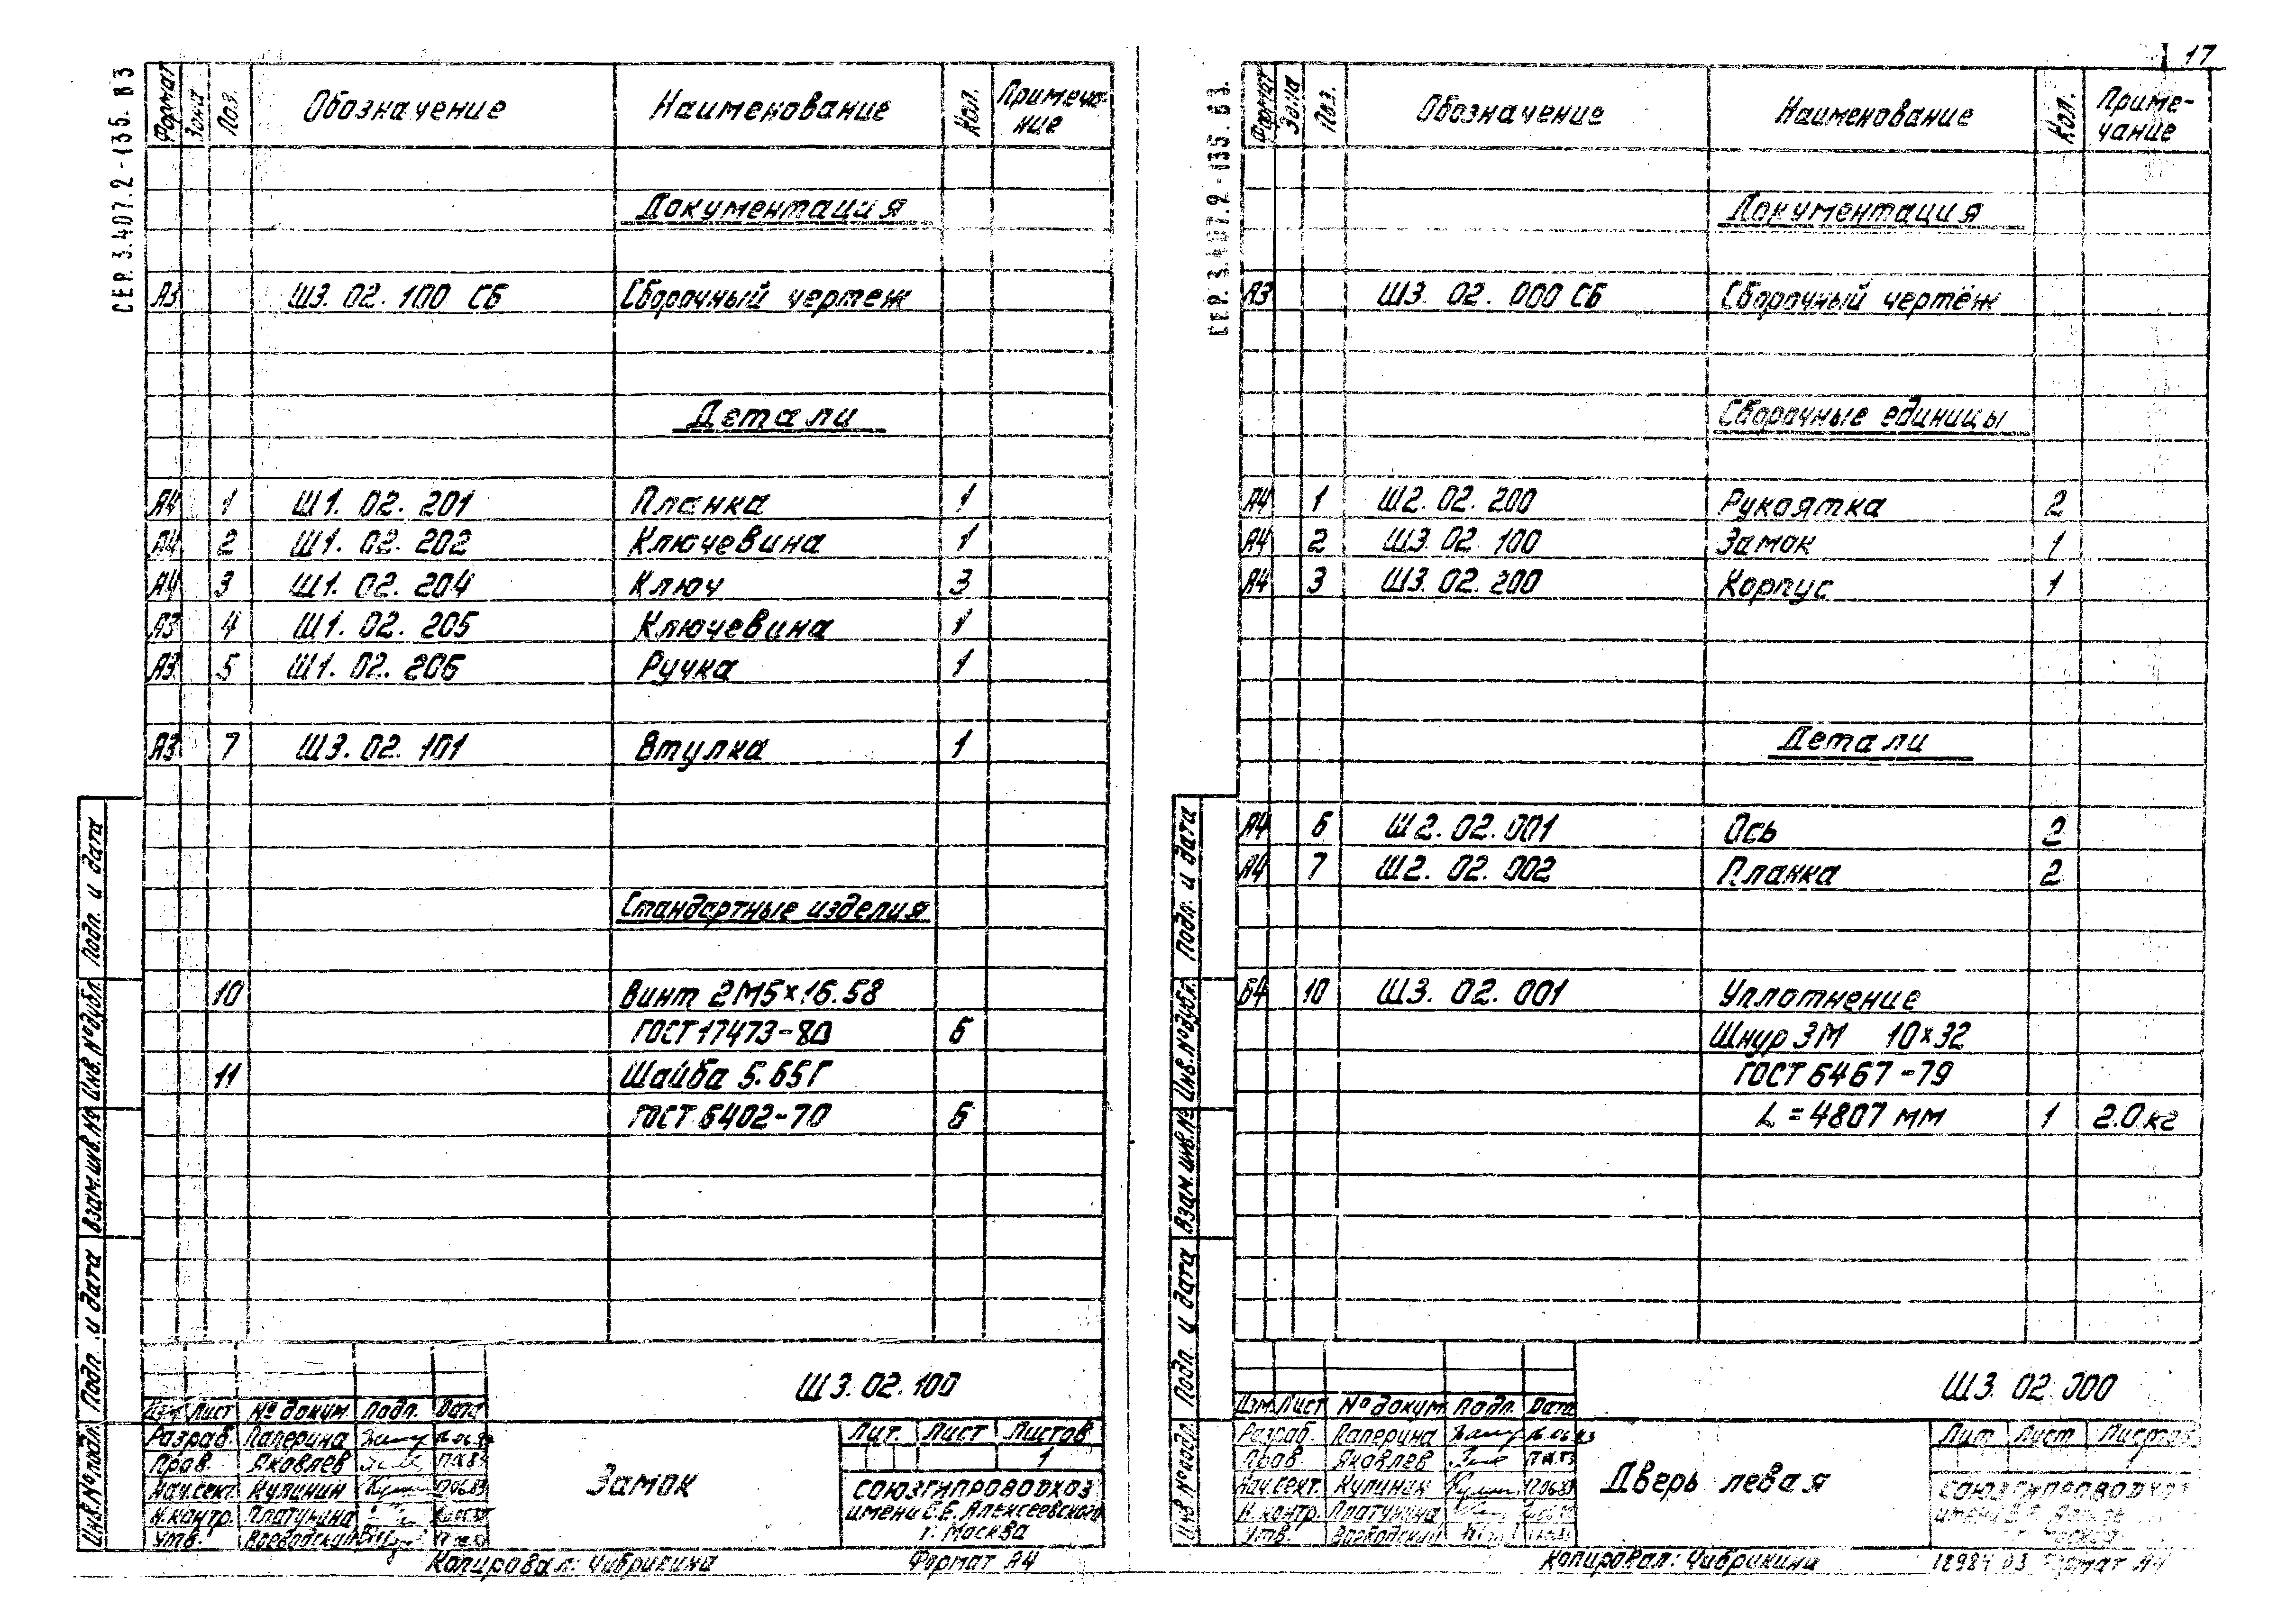 17
СЕР. 3.407.2-135. В3
Формат Зона Поз. Обозначение Наименование Кол. Примечание
Документация
А3 Ш3. 02. 100 СБ Сборочный чертеж
Детали
А4 1 Ш1. 02. 201 Планка 1
А4 2 Ш1. 02. 202 Ключевина 1
А4 3 Ш1. 02. 204 Ключ 3
А3 4 Ш1. 02. 205 Ключевина 1
А3 5 Ш1. 02. 206 Ручка 1
А3 7 Ш3. 02. 101 Втулка 1
Стандартные изделия
10 Винт 2М5×16.58
ГОСТ 17473-80 6
11 Шайба 5.65Г
ГОСТ 6402-70 6
Инв.№подл. Подп. и дата Взам.инв.№ Инв.№дубл. Подп. и дата
Ш3. 02. 100
Изм Лист № докум. Подп. Дата
Разраб. Паперина
Пров. Яковлев
Нач.сект. Кулинин
Н.контр. Платунина
Утв. Воеводский
Замок
Лит. Лист Листов
1
СОЮЗГИПРОВОДХОЗ
имени Е.Е. Алексеевского
г. Москва
Копировал: Чибрикина Формат А4
СЕР. 3.407.2-135. В3.
Формат Зона Поз. Обозначение Наименование Кол. Примечание
Документация
А3 Ш3. 02. 000 СБ Сборочный чертёж
Сборочные единицы
А4 1 Ш2. 02. 200 Рукоятка 2
А4 2 Ш3. 02. 100 Замок 1
А4 3 Ш3. 02. 200 Корпус 1
Детали
А4 6 Ш2. 02. 001 Ось 2
А4 7 Ш2. 02. 002 Планка 2
Б4 10 Ш3. 02. 001 Уплотнение
Шнур 3М 10×32
ГОСТ 6467-79
L = 4807 мм 1 2.0 кг
Инв №подл. Подп. и дата Взам.инв.№ Инв.№дубл. Подп. и дата
Ш3. 02. 000
Изм Лист № докум. Подп. Дата
Разраб. Паперина
Пров. Яковлев
Нач.сект. Кулинин
Н.контр. Платунина
Утв. Воеводский
Дверь левая
Лит Лист Листов
1
СОЮЗГИПРОВОДХОЗ
имени
Москва
Копировал: Чибрикина 18984 03 Формат А4